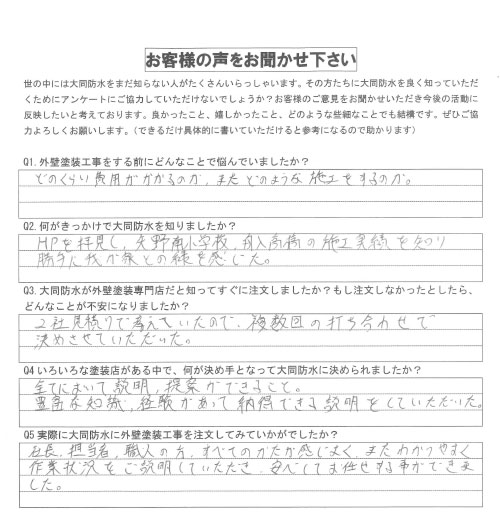 お客様の声をお聞かせ下さい
世の中には大同防水をまだ知らない人がたくさんいらっしゃいます。その方たちに大同防水を良く知っていただ
くためにアンケートにご協力していただけないでしょうか？お客様のご意見をお聞かせいただき今後の活動に
反映したいと考えております。良かったこと、嬉しかったこと、どのような些細なことでも結構です。ぜひご協
力よろしくお願いします。（できるだけ具体的に書いていただけると参考になるので助かります）
Q1. 外壁塗装工事をする前にどんなことで悩んでいましたか？
どのくらい費用がかかるのか、またどのような施工をするのか。
Q2. 何がきっかけで大同防水を知りましたか？
HPを拝見し、矢野南小学校、舟入高校の施工実績を知り
勝手に我が家との縁を感じた。
Q3. 大同防水が外壁塗装専門店だと知ってすぐに注文しましたか？もし注文しなかったとしたら、
どんなことが不安になりましたか？
2社見積りで考えていたので、複数回の打ち合わせで
決めさせていただいた。
Q4 いろいろな塗装店がある中で、何が決め手となって大同防水に決められましたか？
全てにおいて説明、提案ができること。
豊富な知識、経験があって納得できる説明をしていただいた。
Q5 実際に大同防水に外壁塗装工事を注文してみていかがでしたか？
社長、担当者、職人の方、すべてのかたが感じよく、またわかりやすく
作業状況をご説明していただき、安心してお任せする事ができま
した。